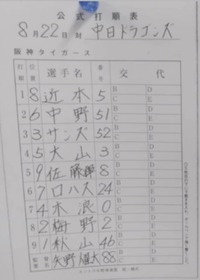 公式打順表
8月22日 対 中日ドラゴンズ
阪神タイガース
打順 位置 選手名 番号 交代
1 8 近本 5 B D C E
2 6 中野 51 B D C E
3 3 サンズ 52 B D C E
4 5 大山 3 B D C E
5 9 佐藤輝 8 B D C E
6 7 ロハス 24 B D C E
7 4 木浪 0 B D C E
8 2 梅野 2 B D C E
9 1 秋山 46 B D C E
監督 矢野燿大 88